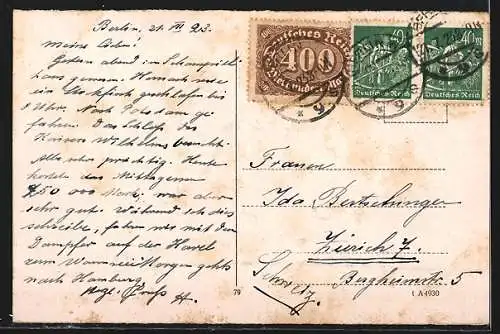 Berlin, 21. VII 23.
meine Lieben!
Gestern abend im Schauspiel
haus gewesen. Hernach
ein gut geschlafen bis
8 Uhr. Nach Potsdam ge
fahren. Das Schloss des
Kaisers Wilhelms besucht.
Alles sehr prächtig. Heute
kostete das Mittagessen
50 000 Mark, war aber
sehr gut. Während ich dies
schreibe, fahren wir mit dem
Dampfer auf der Havel
zum Wannsee. Morgen gehts
nach Hamburg
Herzl. Gruss H.
Deutsches Reich
400
40 M
Deutsches Reich
40 M
Deutsches Reich
Frauen
Ida Bertschinger
Zürich 7.
Bergheimstr. 5
Schweiz.
79
A 4930